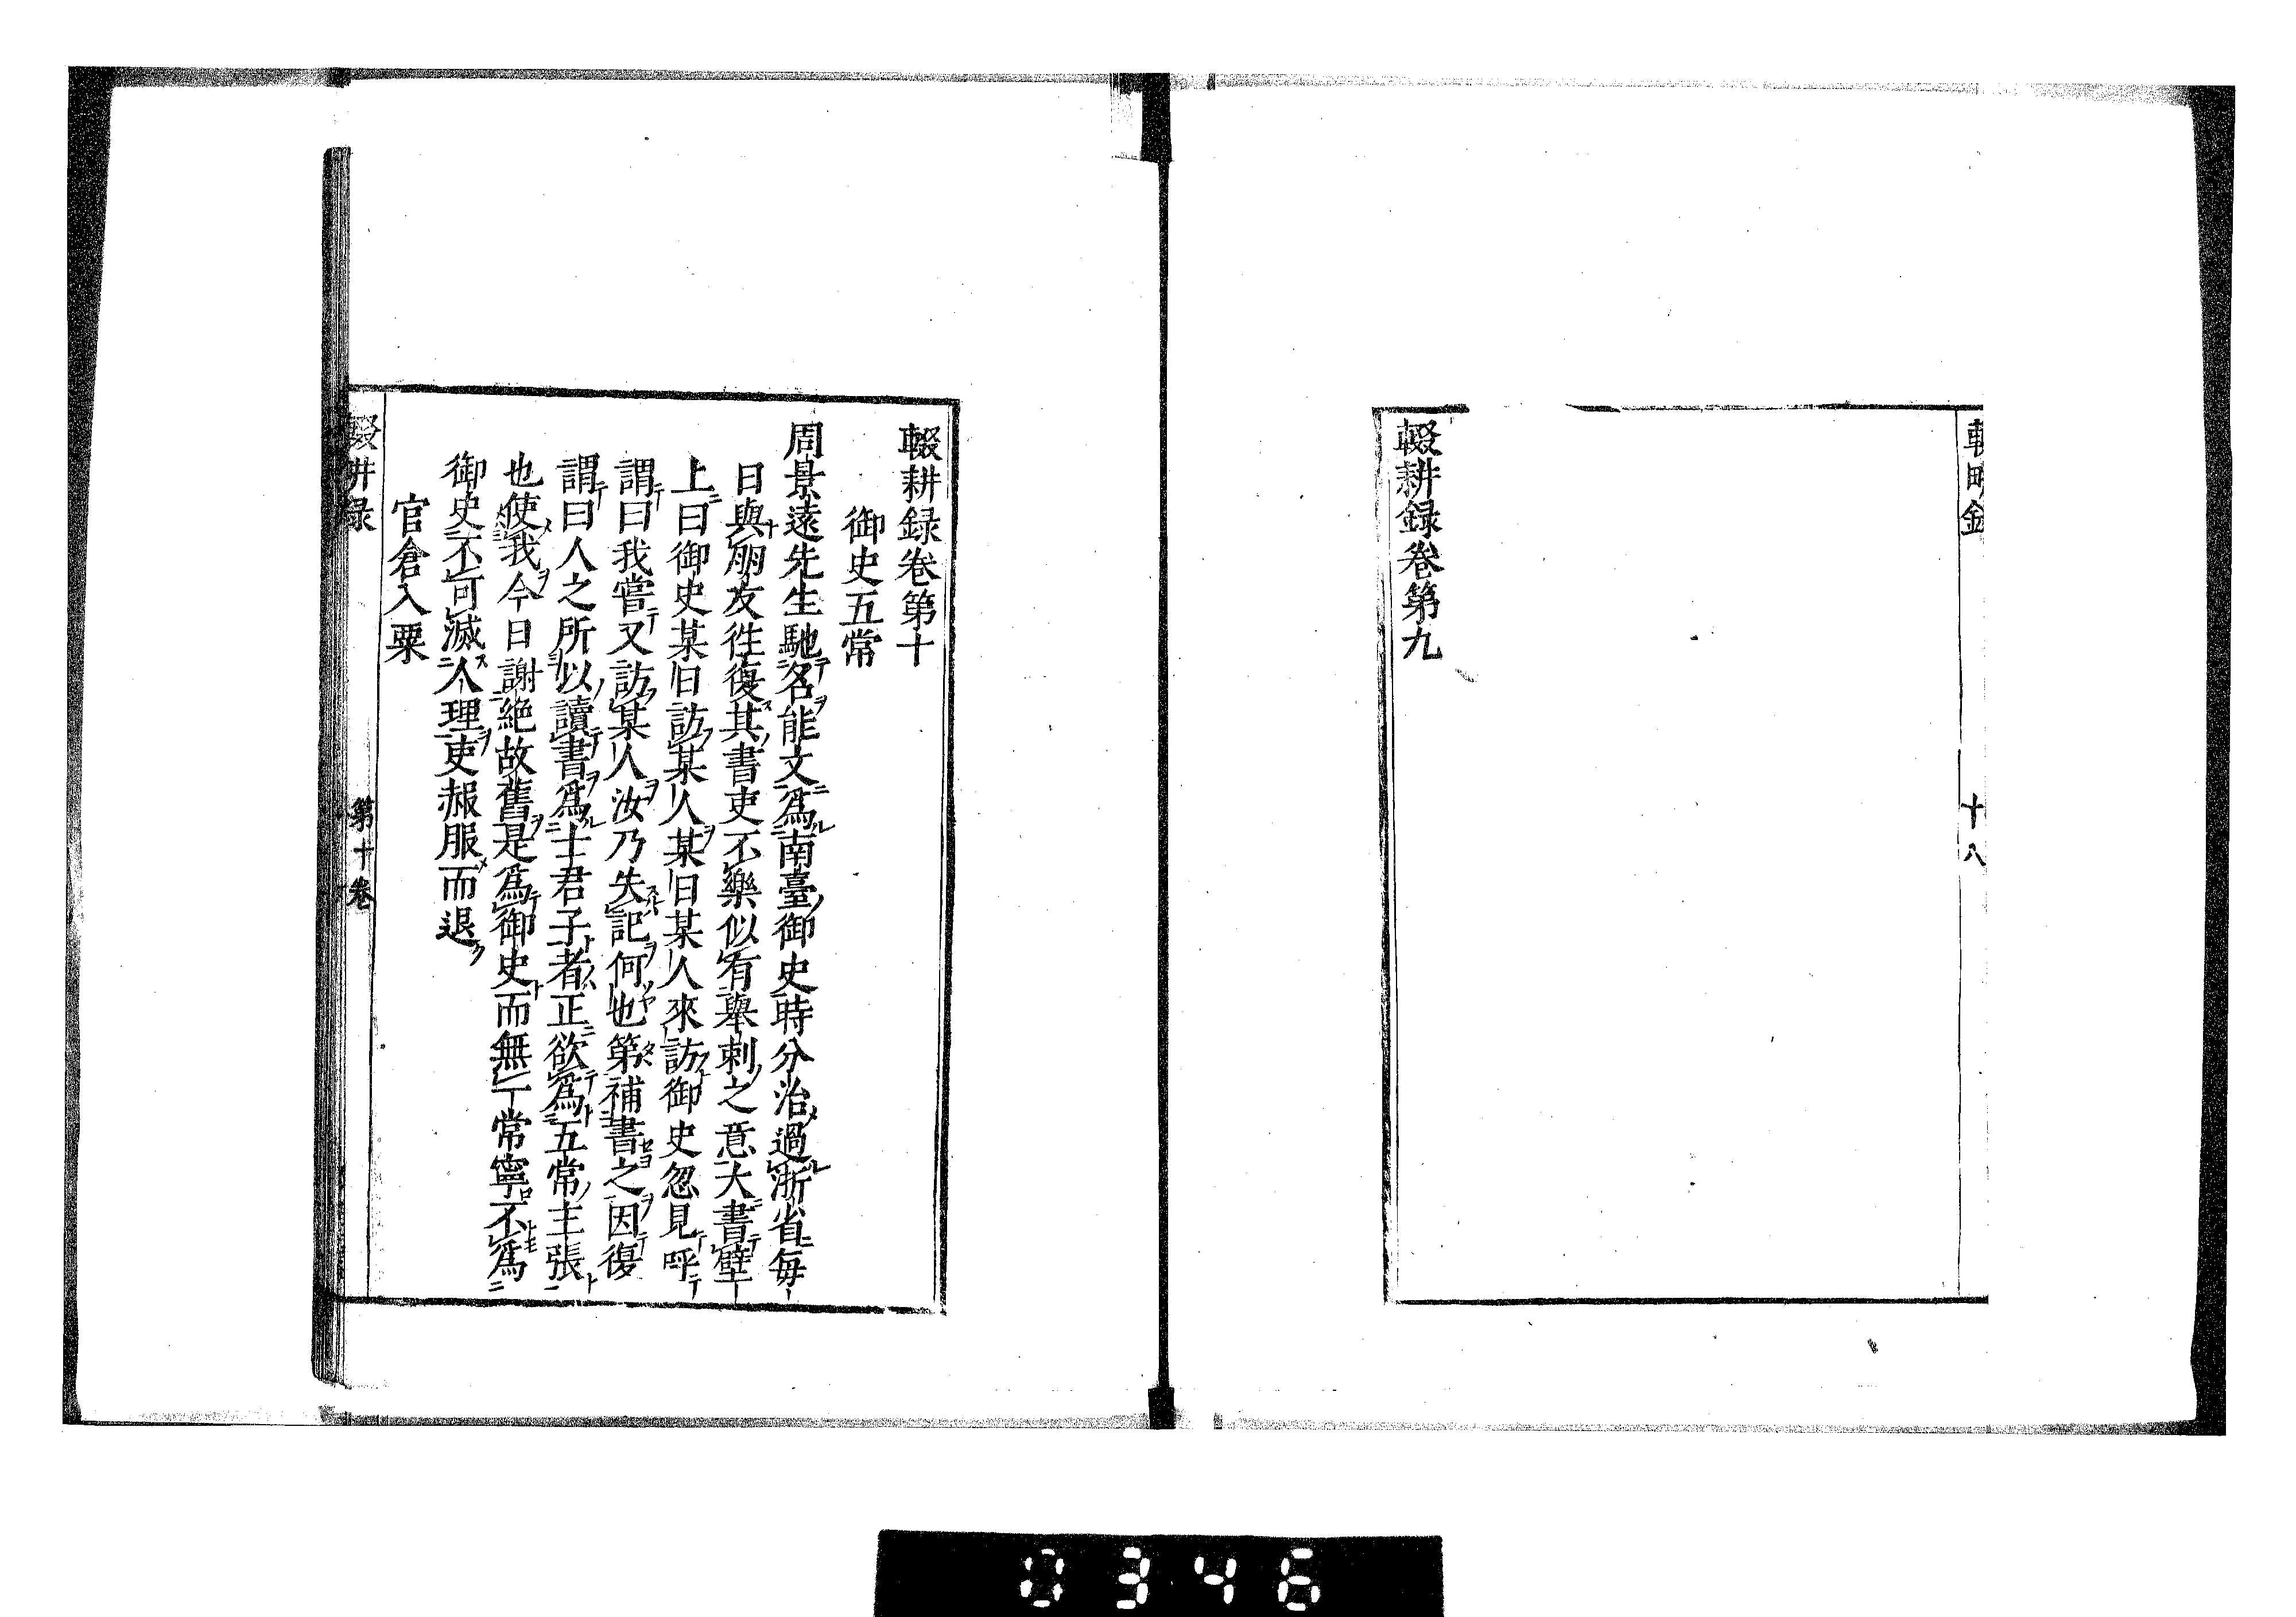 輟耕録
十八
輟耕録卷第九
輟耕録卷第十
御史五常
周景遠先生馳名能文爲南臺御史時分治過浙省毎
日與朋友徃復其書吏不樂似有舉刺之意大書壁
上曰御史某日訪某人某日某人來訪御史忽見呼
謂曰我嘗又訪某人汝乃失記何也第補書之因復
謂曰人之所以讀書爲士君子者正欲爲五常主張
也使我今日謝絶故舊是爲御史而無一常寧不爲
御史不可滅人理吏赧服而退
官倉入粟
輟耕録
第十卷
0346